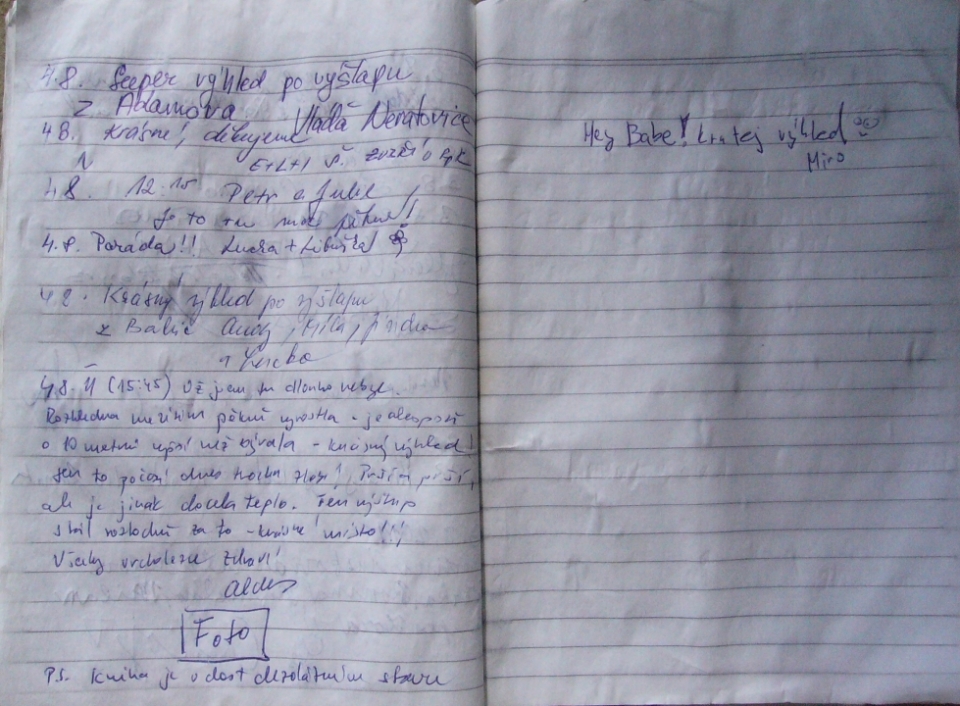 4.8. Super výhled po vyštapu
z Adamova Vlaďa Neratovice
4.8. Krásné, děkujeme
4.8. 12:15 Petr a
Je to tu moc pěkné!
4.8. Paráda!!! Lucka + Libuška
4.8. Krásný výhled po výšlapu
z Babic Míla,
Lucka
4.8. (15:45) Už jsem tu dlouho nebyl.
Rozhledna mezitím pěkně vyrostla - je alespoň
o 10 metrů vyšší než bývala - krásný výhled!
Jen to počasí dnes trochu zlobí, Prší
ale je jinak docela teplo. Ten výstup
stál rozhodně za to - krásné místo!!!
Všechny vrcholaře zdraví
Foto
P.S. Kniha je v dost dezolátním stavu
Hey Babe! krutej výhled
Miro